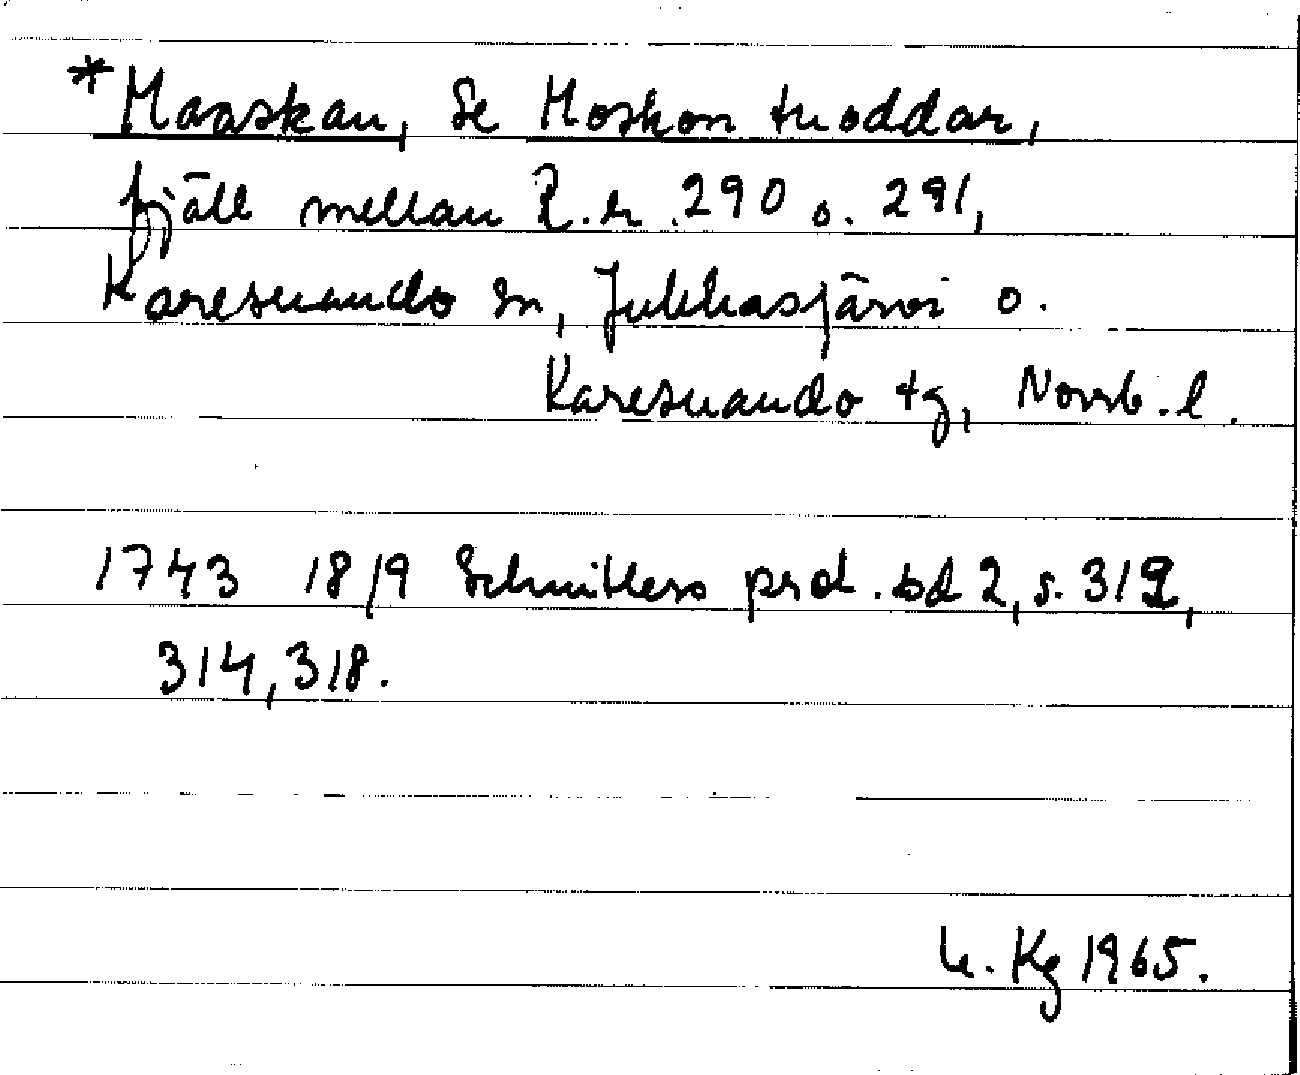 *Maaskau, Se Moskon tuoddar,
fjäll mellan R.r. 290 o. 291,
Karesuando sn, Jukkasjärvi o.
Karesuando tg, Norrb. l.
1743 18/9 Schnitlers prot. bd 2, s. 312,
314, 318.
Kg 1965.